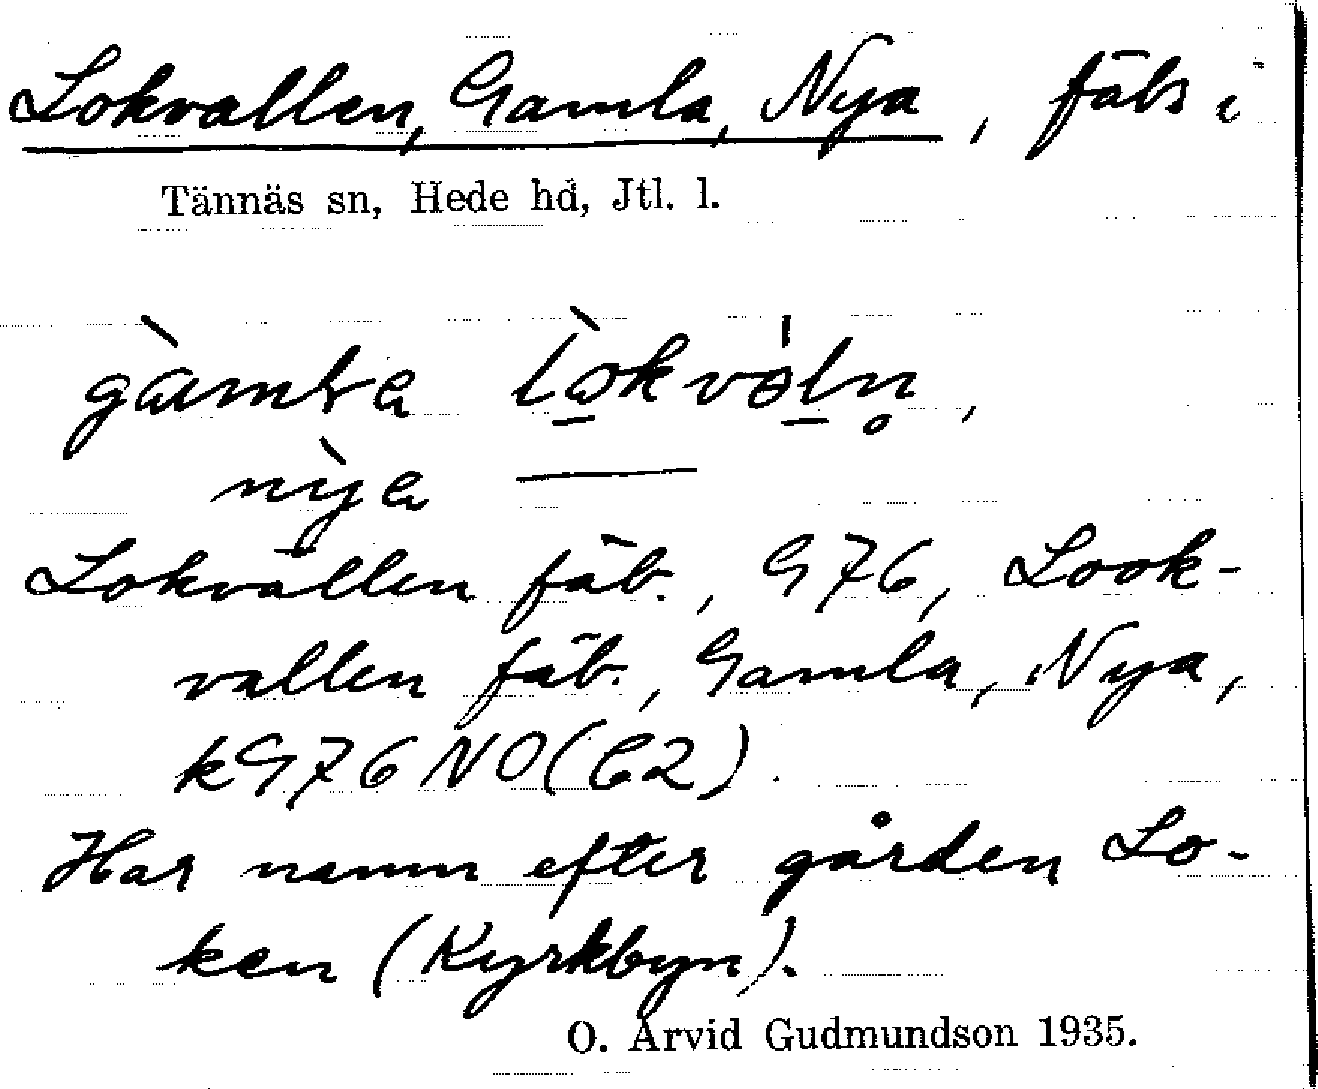 Lokvallen, Gamla, Nya, fäb. i
Tännäs sn, Hede hd, Jtl. l.
gàmɫa lò̱kvȯḻn̥,
nỳa ———
Lokvallen fäb., G76, Look-
vallen fäb., Gamla, Nya,
kG76NO(C2).
Har namn efter gården Lo-
ken (Kyrkbyn).
O. Arvid Gudmundson 1935.